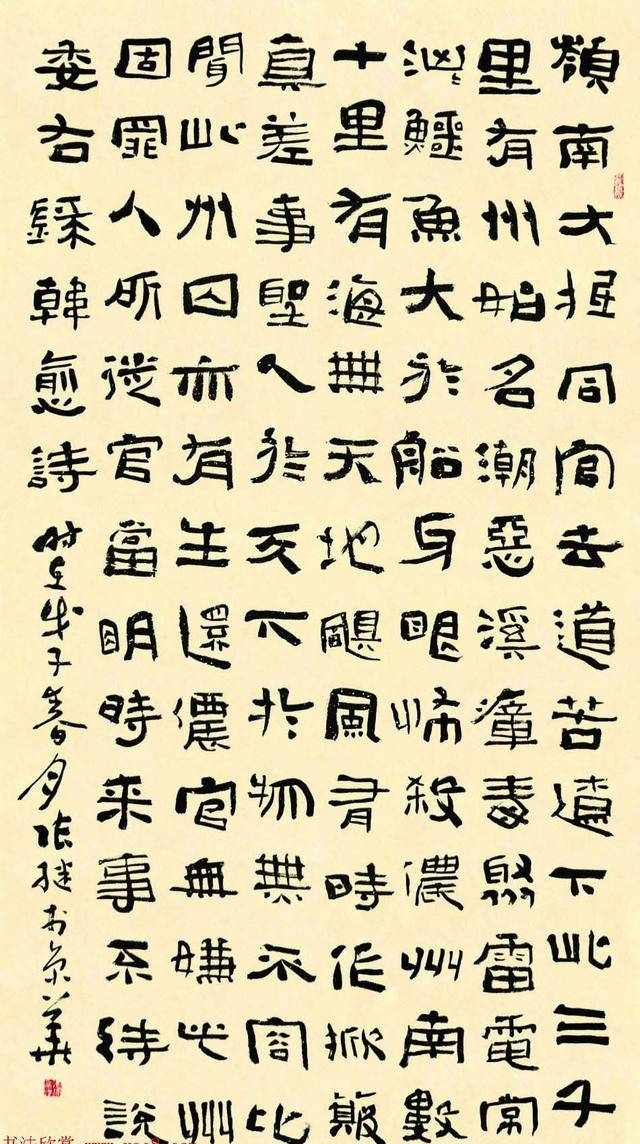 嶺南大抵同官去道苦遼下此三千
里有州始名潮惡溪瘴毒聚雷電常
洶鱷魚大於船牙眼怖殺儂州南數
十里有海無天地颶風有時作掀簸
真差事聖人於天下於物無不容比
聞此州囚亦有生還儂官無嫌此州
固罪人所徙官當明時来事不待說
委右録韓愈詩 时在戊子春月張继书京華
书法欣赏